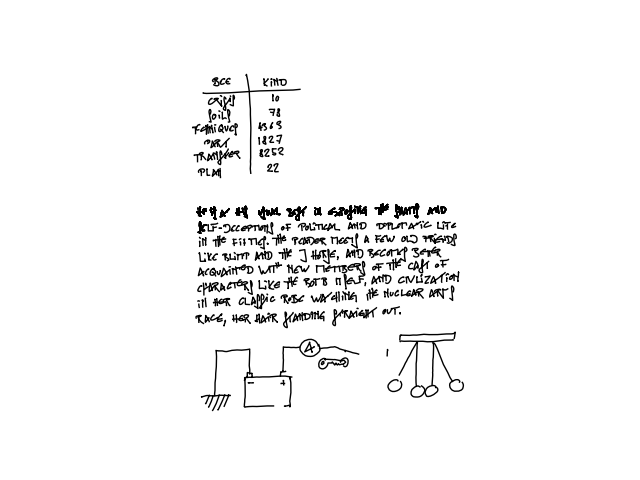 BCE KIND
CRISIS 10
SOILS 78
TECHNIQUES 4369
PART 1827
TRANSFER 8252
PLAN 22
HE IS AT HIS USUAL BEST IN EXPOSING THE SHAMS AND
SELF-DECEPTIONS OF POLITICAL AND DIPLOMATIC LIFE
IN THE FIFTIES. THE READER MEETS A FEW OLD FRIENDS
LIKE BLIMP AND THE J HORSE, AND BECOMES BETTER
ACQUAINTED WITH NEW MEMBERS OF THE CAST OF
CHARACTERS LIKE THE BOMB ITSELF, AND CIVILIZATION
IN HER CLASSIC ROBE WATCHING THE NUCLEAR ARMS
RACE, HER HAIR STANDING STRAIGHT OUT.
- + A